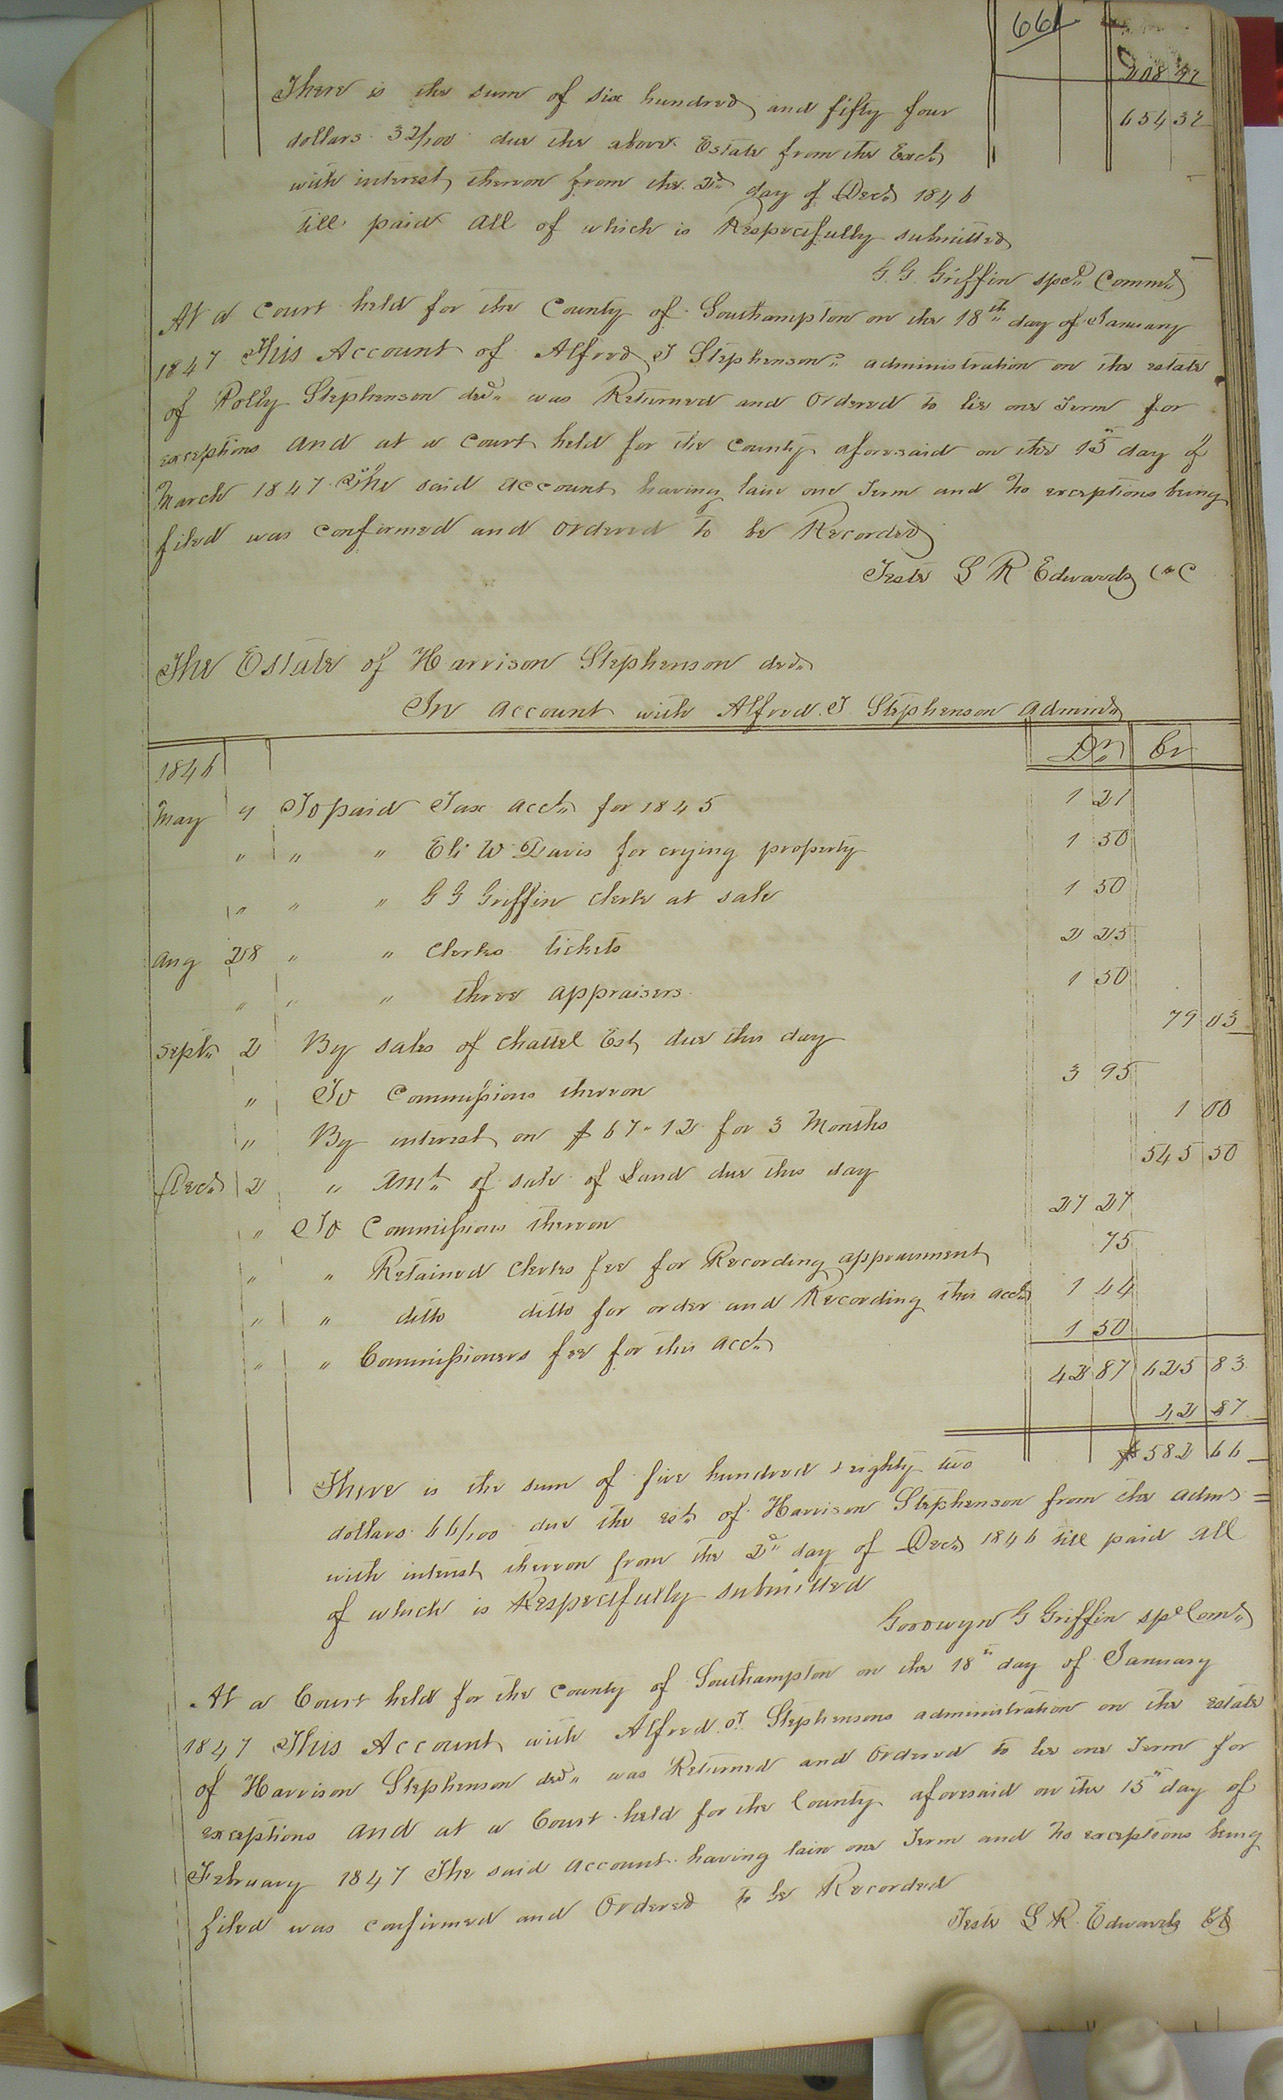 661
208 97
There is the sum of six hundred and fifty four
654 32
dollars 32/100 due the above Estate from the Exctr
with interest thereon from the 2d day of Decr 1846
till paid All of which is Respectfully submitted
G. G. Griffin specl Commr
At a Court held for the County of Southampton on the 18th day of January
1847 This Account of Alfred J Stephensons administration on the estate
of Polly Stephenson decd was Returned and Ordered to lie one Term for
exceptions and at a Court held for the County aforesaid on the 15th day of
March 1847 The said account having lain one Term and no exceptions being
filed was confirmed and Ordered to be Recorded
Teste L R Edwards C C
The Estate of Harrison Stephenson decd
In account with Alfred J Stephenson Adminr
Dr Cr
1846
May 9 To paid Tax acct for 1845 1 21
" " " Eli W Davis for crying property 1 50
" " " G G Griffin Clerk at sale 1 50
Aug 28 " " Clerks tickets 2 25
" " " three appraisers 1 50
Septr 2 By sales of Chattel Est due this day 79 03
" To Commissions thereon 3 95
" By interest on $67.12 for 3 Months 1 00
Decr 2 " Amt of sale of Land due this day 545 50
" To Commissions thereon 27 27
" " Retained Clerks fee for Recording appraisment 75
" " ditto ditto for order and Recording this acct 1 44
" " Commissioners fee for this acct 1 50
42 87 625 83
42 87
$582 66
There is the sum of five hundred & eighty two
dollars 66/100 due the est of Harrison Stephenson from the admr
with interest thereon from the 2d day of Decr 1846 till paid All
of which is Respectfully submitted
Goodwyn G Griffin spl Comr
At a Court held for the County of Southampton on the 18th day of January
1847 This Account with Alfred J Stephensons administration on the estate
of Harrison Stephenson decd was Returned and Ordered to lie one Term for
exceptions and at a Court held for the County aforesaid on the 15th day of
February 1847 The said account having lain one Term and no exceptions being
filed was confirmed and Ordered to be Recorded
Teste L R Edwards CC